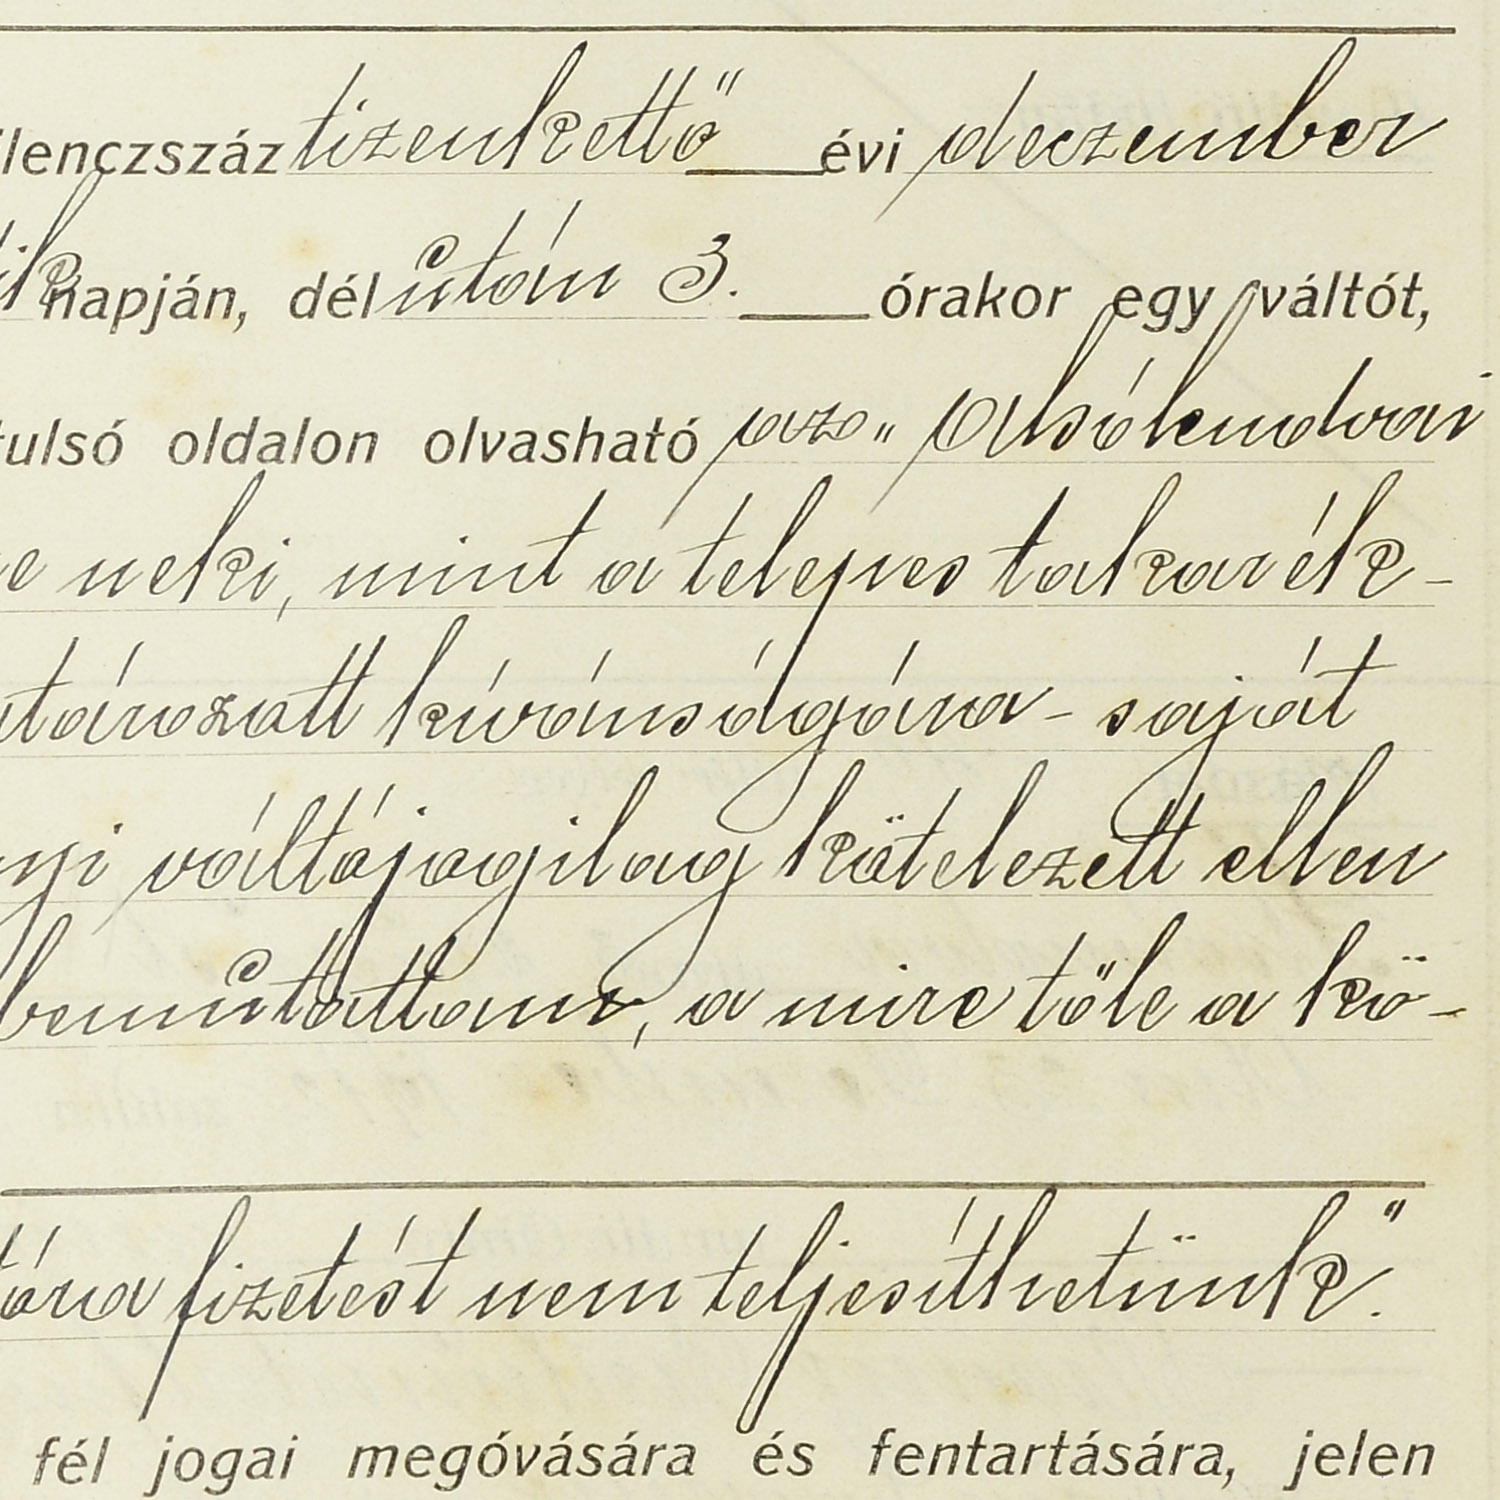 ilenczszáz tizenkettő évi deczember
ik napján, dél után 3. órakor egy váltót,
tulsó oldalon olvasható az „Alsólendvai
e neki, mint a telepes takarék-
tározatt kívánságára - saját
nyi váltójogilag kötelezett ellen
bemutattam, a mire tőle a kö-
tóra fizetést nem teljesíthetünk".
fél jogai megóvására és fentartására, jelen